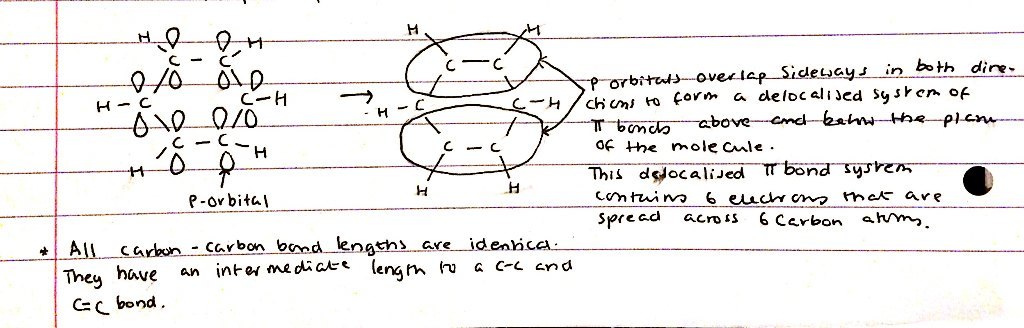 H H
C - C
H - C C - H
C - C - H
H
P-orbital
→
H H
C - C
H - C C - H
C - C
H H
p orbitals overlap sideways in both dire-
ctions to form a delocalised system of
π bonds above and below the plane
of the molecule.
This delocalised π bond system
contains 6 electrons that are
spread across 6 carbon atoms.
* All carbon - carbon bond lengths are identical.
They have an intermediate length to a C-C and
C=C bond.